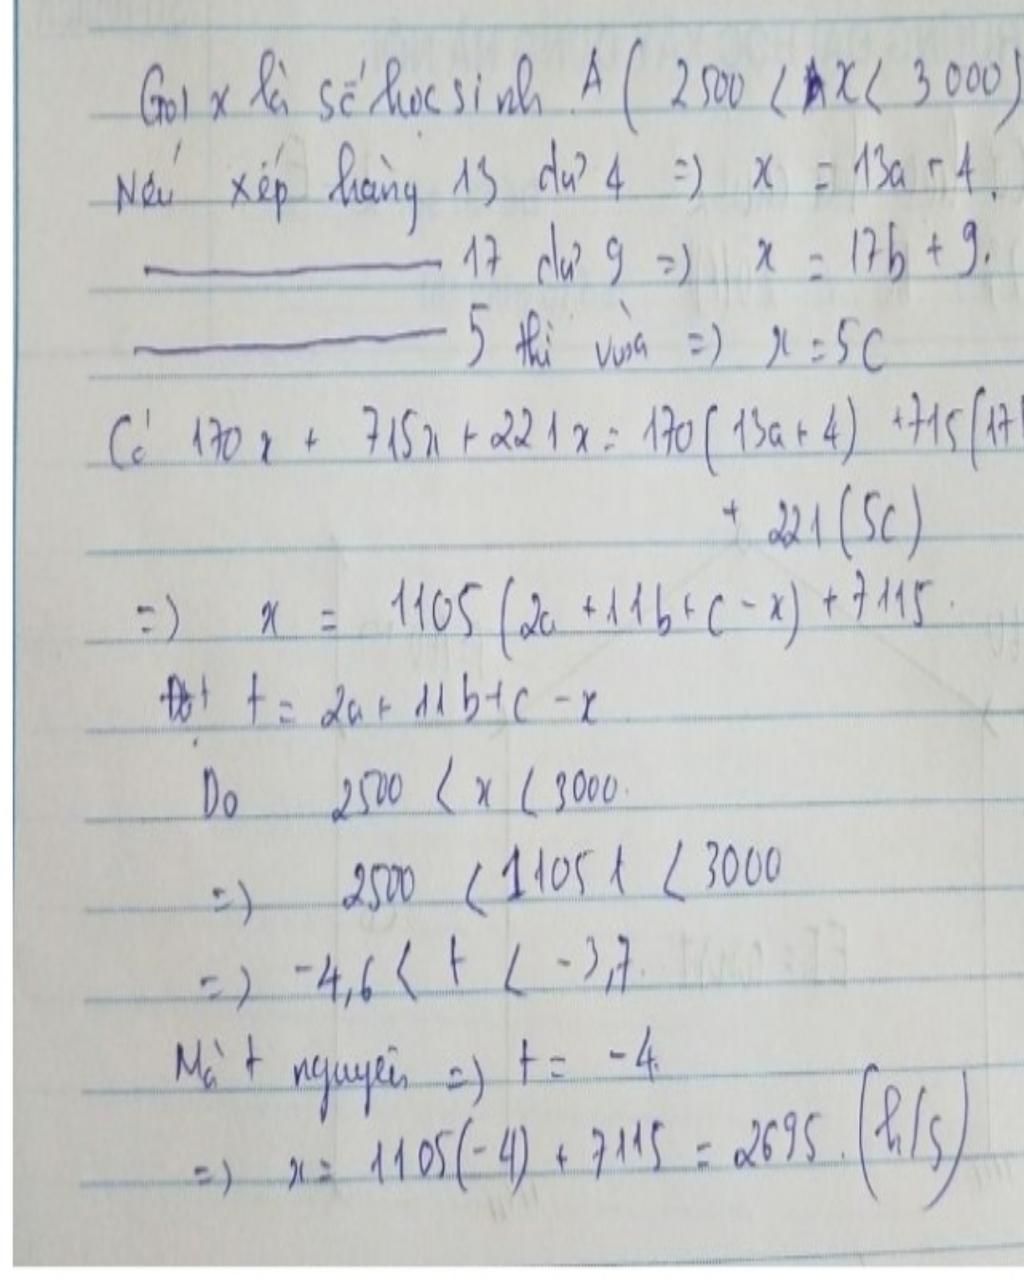 Gọi x là số học sinh A ( 2500 < x < 3000)
Nếu xếp hàng 13 dư 4 => x = 13a + 4.
17 dư 9 => x = 17b + 9.
5 thì vừa => x = 5c
Có 170x + 715x + 221x = 170(13a + 4) + 715(17
+ 221(5c)
=> x = 1105(2a + 11b + c - x) + 7115.
Đặt t = 2a + 11b + c - x
Do 2500 < x < 3000.
=> 2500 < 1105t < 3000
=> -4,6 < t < -3,7
Mà t nguyên => t = -4.
=> x = 1105(-4) + 7115 = 2695. (h/s)